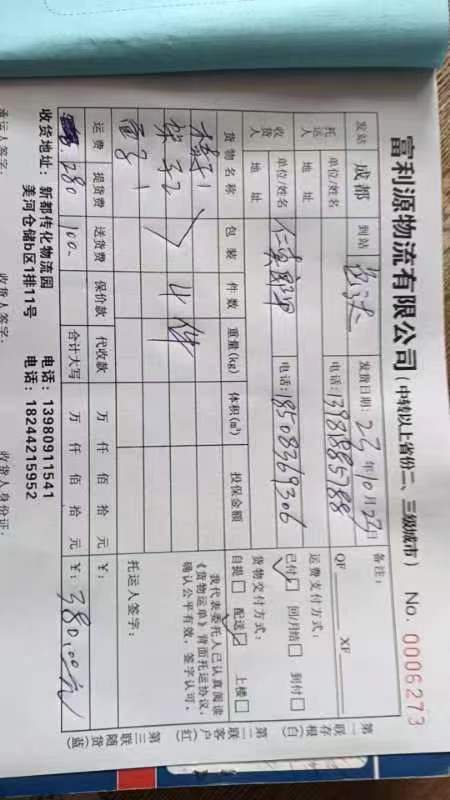 富利源物流有限公司(中转以上省份二、三级城市) No. 0006273
发站 成都 到站 发货日期: 23年10月23日 备注:
托运人 单位/姓名 电话: 13981885788 QF XF
地址 运费支付方式:
收货人 单位/姓名 电话: 18508369306 已付☑ 回/月结□ 到付□
地址 货物交付方式:
货物名称 包装 件数 重量(kg) 体积(m³) 投保金额 自提□ 配送☑ 上楼□
1 我代表委托人已认真阅读
架子2 4件 《货物运单》背面托运协议,
1 确认公平有效,签字认可。
托运人签字:
运费 提货费 送货费 保价款 代收款 万 仟 佰 拾 元 ¥:
280 100- 合计大写 万 仟 佰 拾 元 ¥: 380.00元
收货地址: 新都传化物流园 电话: 13980911541
美河仓储b区1排11号 电话: 18244215952
承运人签字: 收货人签字: 收货人身份证:
第一联存根(白) 第二联客户(红) 第三联随货(蓝)